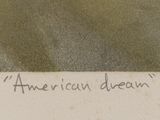 "American dream"